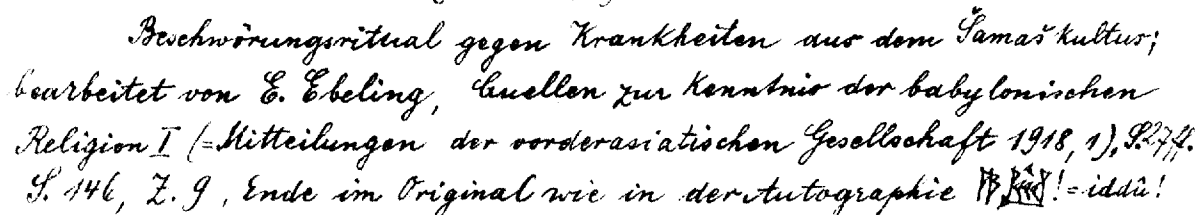 Beschwörungsritual gegen Krankheiten aus dem Šamaškultus;
bearbeitet von E. Ebeling, Quellen zur Kenntnis der babylonischen
Religion I (=Mitteilungen der vorderasiatischen Gesellschaft 1918, 1), S. 27ff.
S. 146, Z. 9, Ende im Original wie in der Autographie ! = iddû!